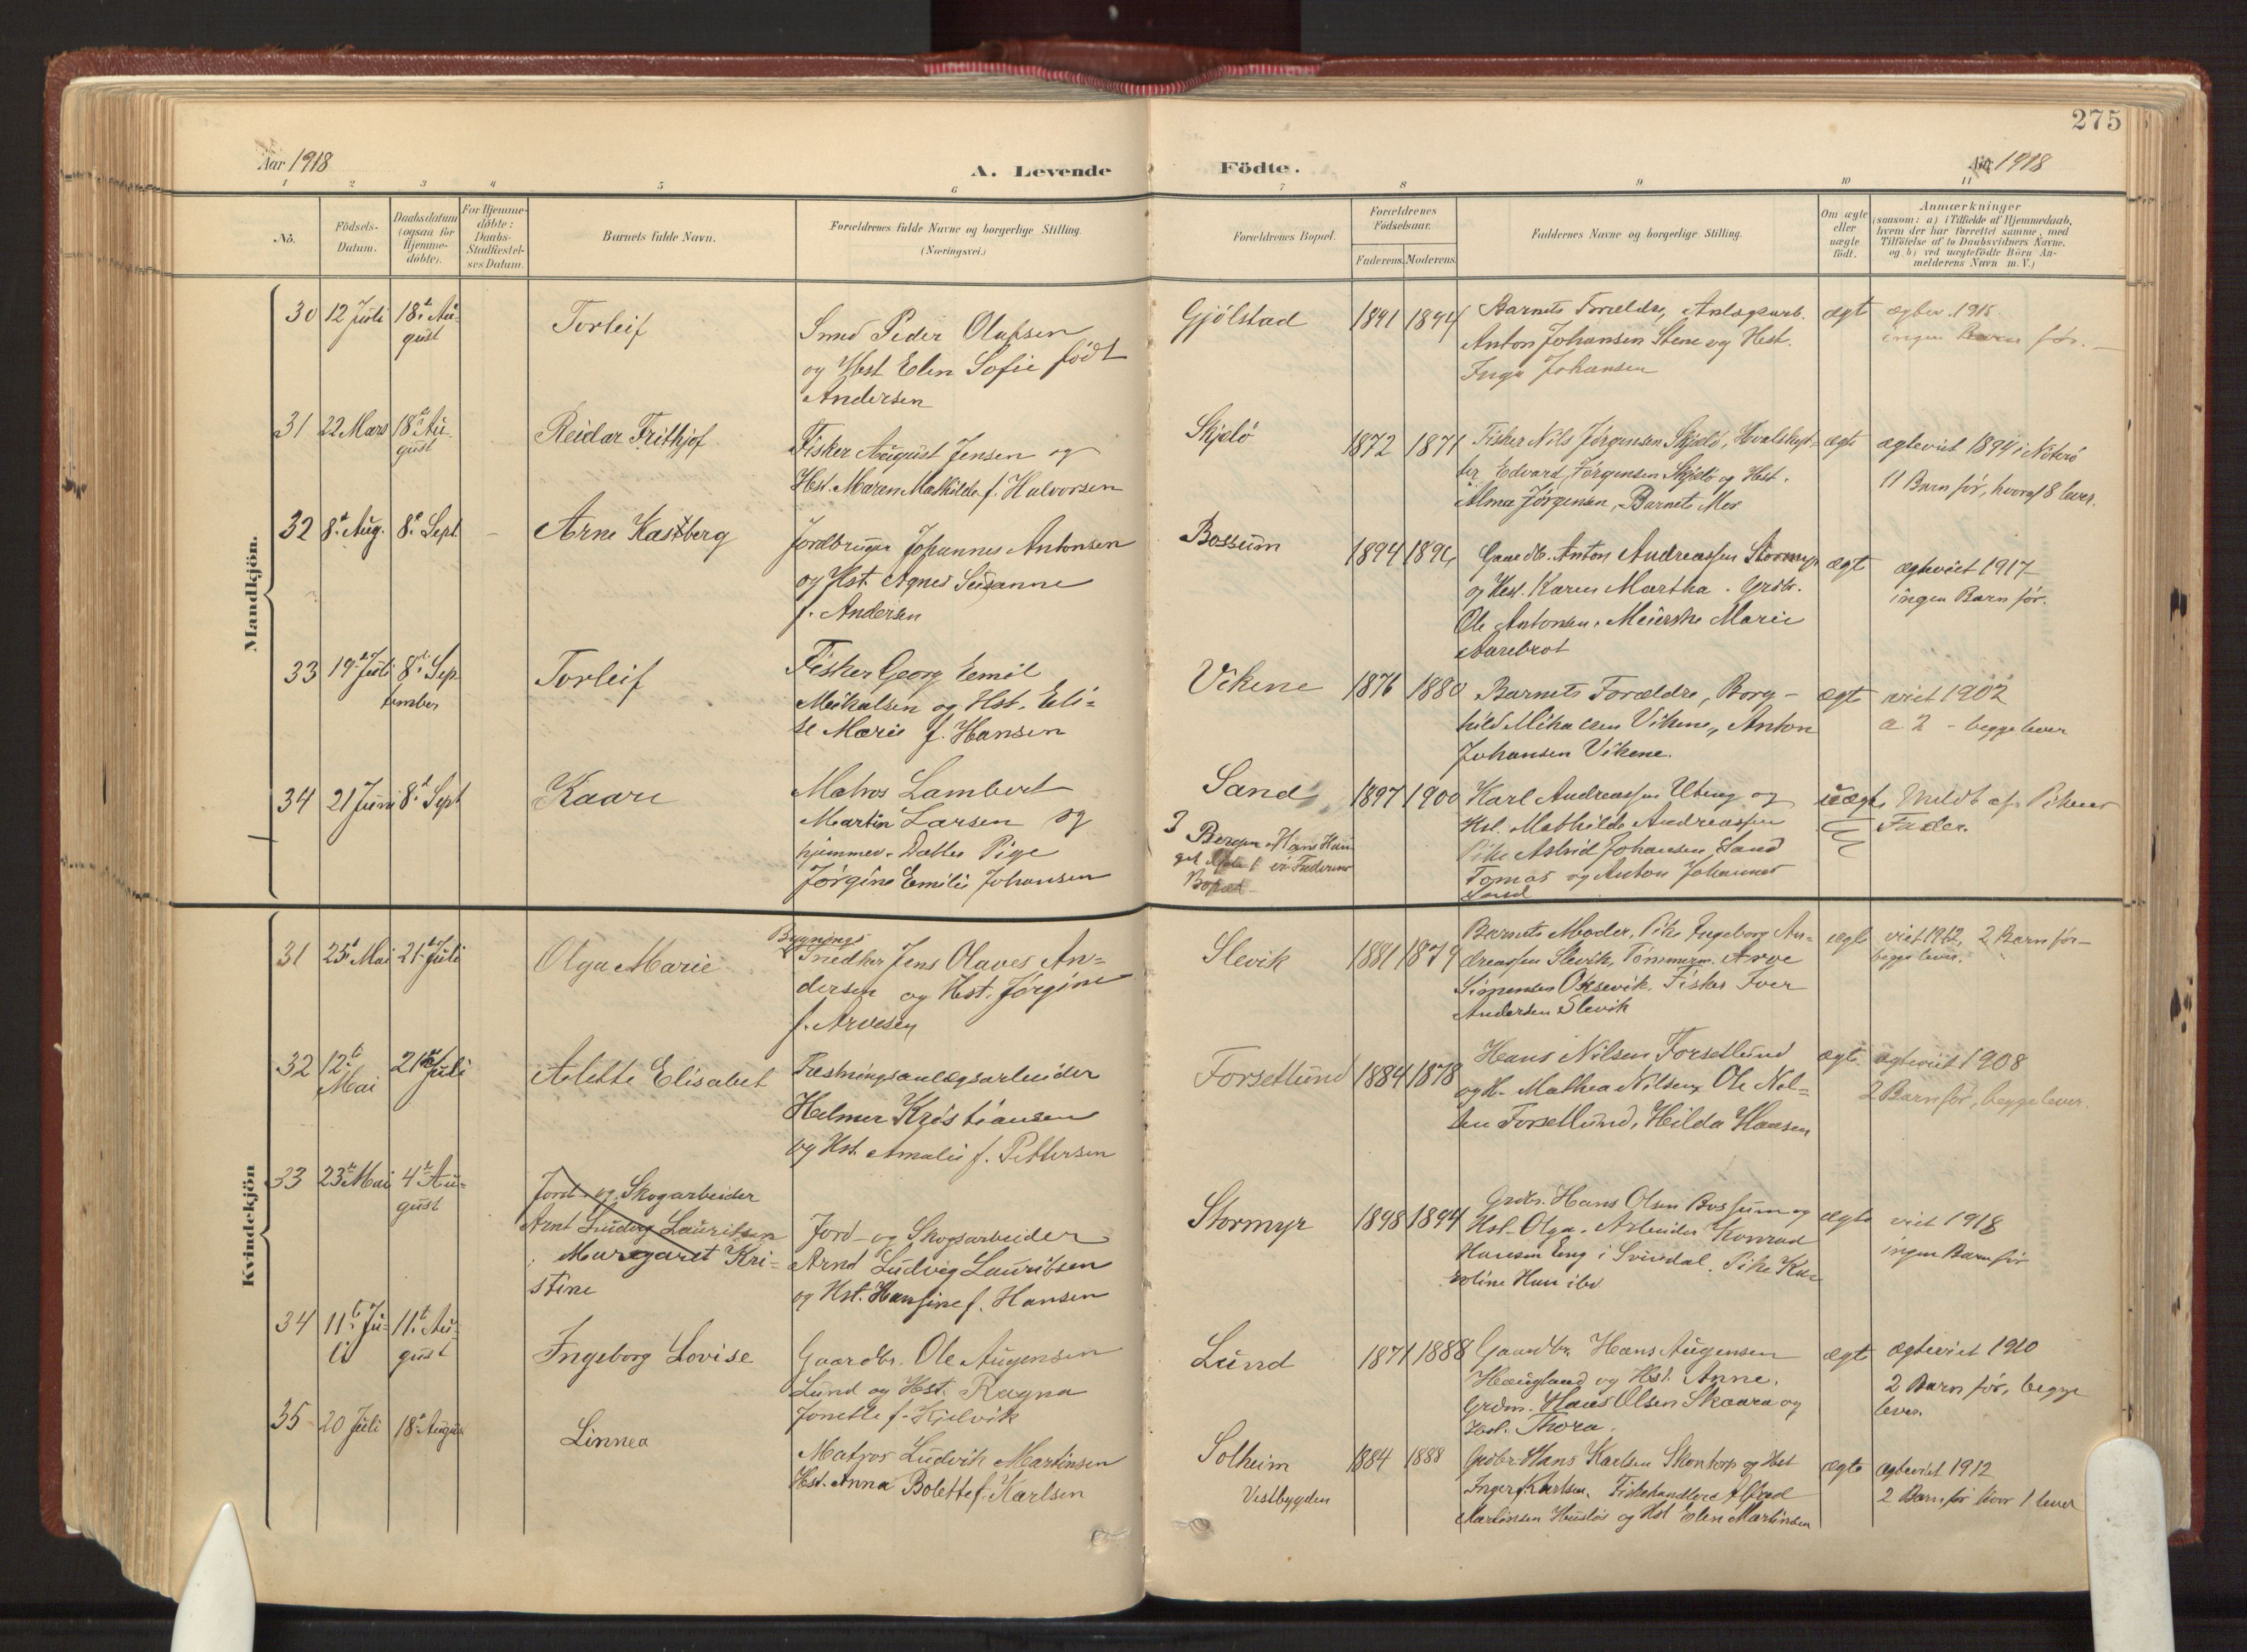 275
Aar 1918
A. Levende Födte.
Aar 1918
1 2 3 4 5 6 7 8 9 10 11
No.
Födsels-
Datum.
Daabsdatum
(ogsaa for
Hjemme-
döbte).
For Hjemme-
döbte:
Daabs-
Stadfæstel-
ses Datum.
Barnets fulde Navn.
Forældrenes fulde Navne og borgerlige Stilling.
(Næringsvei.)
Forældrenes Bopæl.
Forældrenes
Födselsaar.
Faderens. Moderens.
Faddernes Navne og borgerlige Stilling.
Om ægte
eller
uægte
födt.
Anmærkninger
(saasom: a) i Tilfælde af Hjemmedaab,
hvem der har forrettet samme, med
Tilföielse af to Daabsvidners Navne,
og b) ved uægtefödte Börn An-
melderens Navn m. V.)
Mandkjön.
30 12 Juli 18de Au-
gust
Torleif
Smed Peder Olafsen
og Hst Elen Sofie födt
Andersen
Gjölstad
1891 1894
Barnets Forældre, Anlægsarb.
Anton Johansen Stene og Hst.
Inga Johansen
ægte
ingen Barn før.
31 22 Mars 18de Au-
gust
Reidar Frithjof
Fisker August Jensen og
Hst. Maren Mathilde f. Halvorsen
Skjælö
1872 1871
Fisker Nils Jørgensen Skjælö, Hvalskyt-
ter Edvard Jørgensen Skjælö og Hst.
Alma Jørgensen, Barnets Mor
ægte
ægteviet 1894 i Nöterö
11 Barn før, hvoraf 8 lever.
32 8de Aug. 8de Sept. -
Arne Kastberg
Jordbruger Johannes Antonsen
og Hst. Agnes Susanne
f. Andersen
Bossum
1894 1896
Gaardb. Anton Andreassen Stormyr
og Hst. Karen Martha. Grdbr.
Ole Antonsen. Meierske Marie
Aarebrot
ægte
ægteviet 1917
ingen Barn før.
33 19de Juli 8de Sep-
tember
Torleif
Fisker Georg Emil
Mikalsen og Hst. Eli-
se Marie f. Hansen
Vikene
1876 1880
Barnets Forældre, Borg-
hild Mikalsen Vikene, Anton
Johansen Vikene.
ægte
viet 1902
a 2 - begge lever
34 21 Juni 8de Sept
Kaare
Matros Lambert
Martin Larsen og
hjemmev. Datter Pige
Jörgine Emilie Johansen
Sand
Bergen
er Faderens
Bopæl
1897 1900
Karl Andreassen Uteng og
Hst. Mathilde Andreassen
Pike Astrid Johansen Sand
Tomas og Anton Johannes
Sand
uægte
Meldt af Pikens
Fader.
Kvindekjön
31 25de Mai 21de Juli
Olga Marie
Bygnings
Snedker Jens Olaves An-
dersen og Hst. Jørgine
f. Arvesen
Slevik
1881 1879
Barnets Moder, Pike Ingeborg An-
dreassen Slevik, Tømmerm. Arve
Simensen Oksevik. Fisker Iver
Andersen Slevik
ægte
viet 1912, 2 Barn før
begge lever.
32 12te
Mai
21de Juli
Alette Elisabet
Fæstningsanlægsarbeider
Helmer Kristiansen
og Hst. Amalie f. Pettersen
Forsetlund
1884 1878
Hans Nilsen Forsetlund
og H. Mathea Nilsen, Ole Nil-
sen Forsetlund, Hilda Hansen
ægte
ægteviet 1908
2 Barn før, begge lever.
33 23de Mai 4de Au-
gust
Jord- og Skogarbeider
Arnt Ludvig Lauritsen
Margaret Kri-
stine
Jord- og Skogsarbeider
Arnt Ludvig Lauritsen
og Hst. Hansine f. Hansen
Stormyr
1898 1894
Grdbr. Hans Olsen Bossum og
Hst. Olga. Arbeider Konrad
Hansen Eng i Svindal. Pike Ka-
roline Hansen ibd
ægte
viet 1918
ingen Barn før
34 11te Ju-
li
11te Au-
gust
Ingeborg Lovise
Gaardbr. Ole Augensen
Lund og Hst. Ragna
Jonette f. Kjelvik
Lund
1871 1888
Gaardbr. Hans Augensen
Haugland og Hst. Anne.
Grdm. Hans Olsen Skaara og
Hst. Thora.
ægte
ægteviet 1910
2 Barn før, begge
lever.
35 20 Juli 18de August
Linnea
Matros Ludvik Martinsen
Hst. Anna Bolette f. Karlsen
Solheim
Vestbygden
1884 1888
Grdbr Hans Karlsen Skontorp og Hst
Inger Karlsen. Fiskehandler Alfred
Martinsen Husløs og Hst Elen Martinsen
ægte
ægteviet 1912
2 Barn før hvor 1 lever